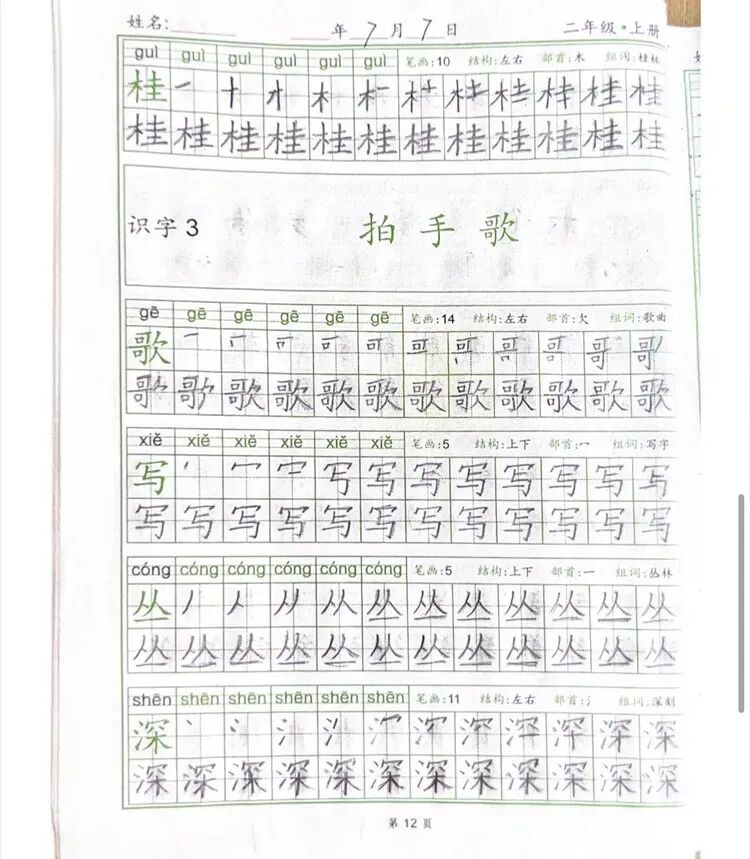 姓名: 年 7 月 7 日 二年级·上册
guì guì guì guì guì guì 笔画:10 结构:左右 部首:木 组词:桂林
桂 一 十 木 桂 桂
桂 桂 桂 桂 桂 桂 桂 桂 桂 桂 桂 桂
识字 3 拍 手 歌
gē gē gē gē gē gē 笔画:14 结构:左右 部首:欠 组词:歌曲
歌 一 哥
歌 歌 歌 歌 歌 歌 歌 歌 歌 歌
xiě xiě xiě xiě xiě xiě 笔画:5 结构:上下 部首:冖 组词:写字
写 丶 冖 写 写 写 写 写 写 写
写 写 写 写 写 写 写 写 写 写 写 写
cóng cóng cóng cóng cóng cóng 笔画:5 结构:上下 部首:一 组词:丛林
丛 丿 人 从 丛 丛 丛 丛 丛 丛 丛
丛 丛 丛 丛 丛 丛 丛 丛 丛 丛 丛 丛
shēn shēn shēn shēn shēn shēn 笔画:11 结构:左右 部首:氵 组词:深刻
深 丶 冫 氵 深 深
深 深 深 深 深 深 深 深 深 深 深 深
第 12 页